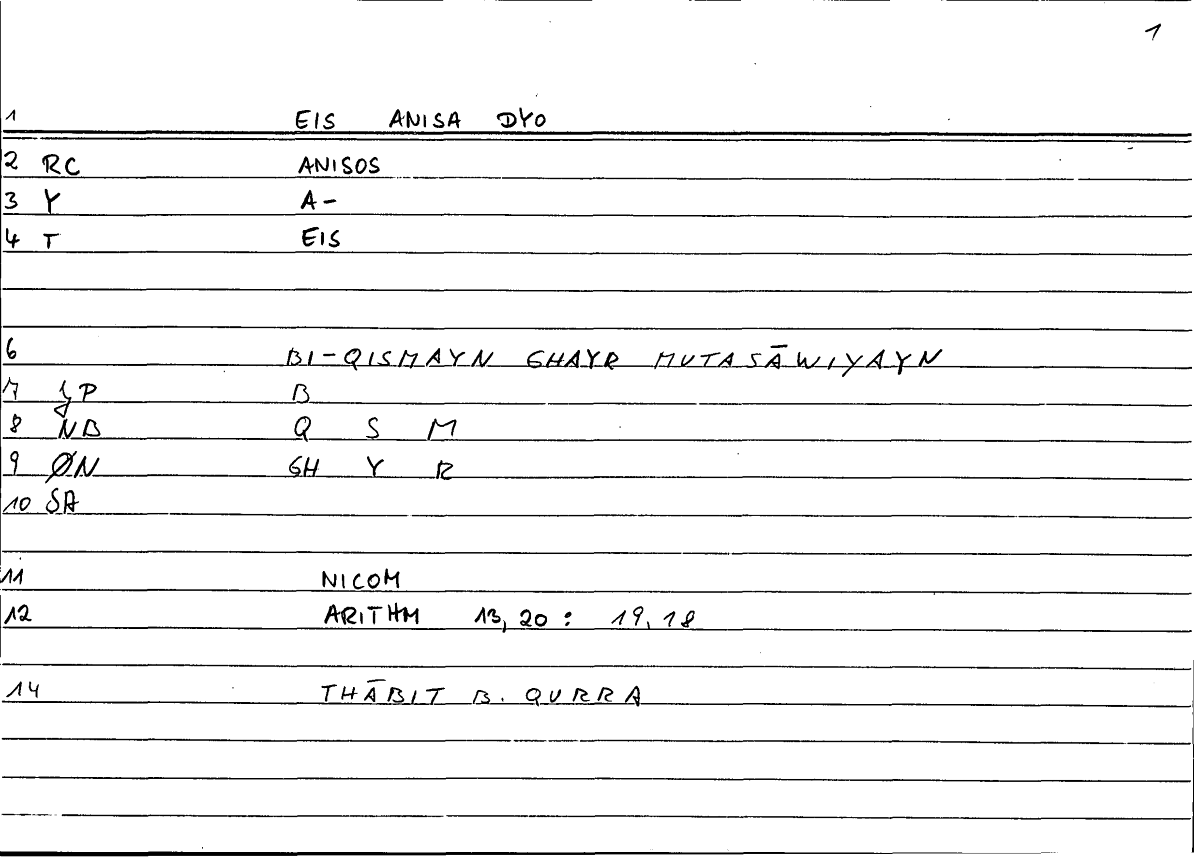 1
1 EIS ANISA DYO
2 RC ANISOS
3 Y A-
4 T EIS
6 BI-QISMAYN GHAYR MUTASĀWIYAYN
7 P B
8 NB Q S M
9 ØN GH Y R
10 SA
11 NICOM
12 ARITHM 13,20 : 19,18
14 THĀBIT B. QURRA